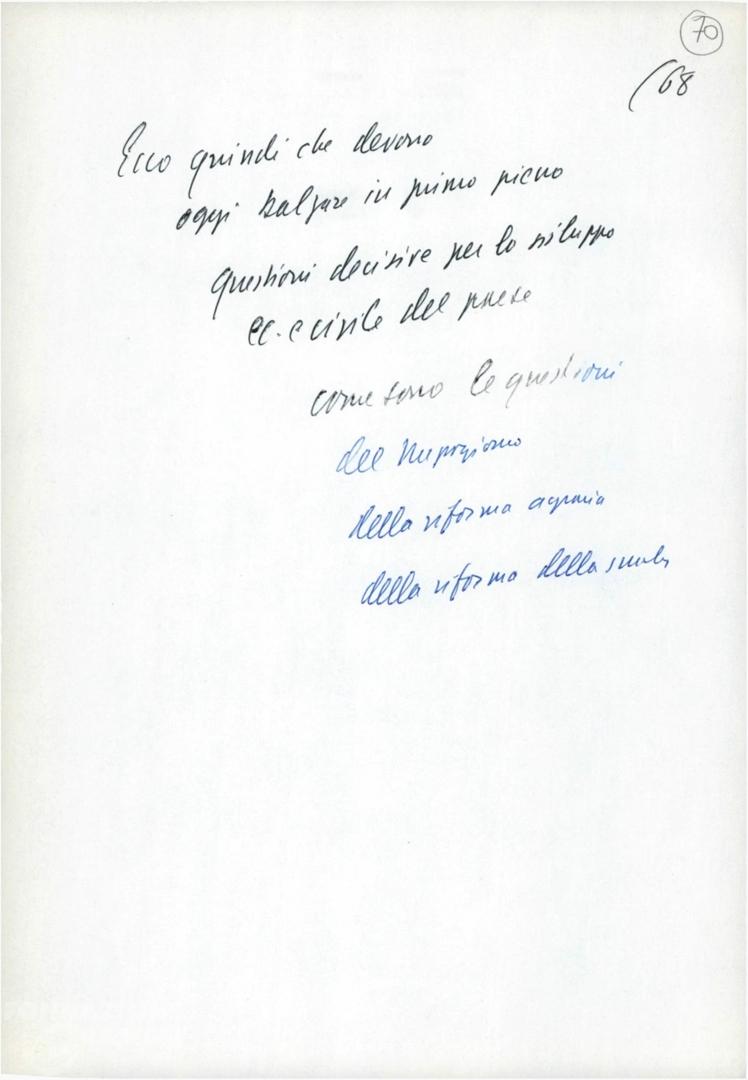 70
(68
Ecco quindi che devono
oggi balzare in primo piano
questioni decisive per lo sviluppo
ec. e civile del paese
come sono le questioni
del Mezzogiorno
della riforma agraria
della riforma della scuola